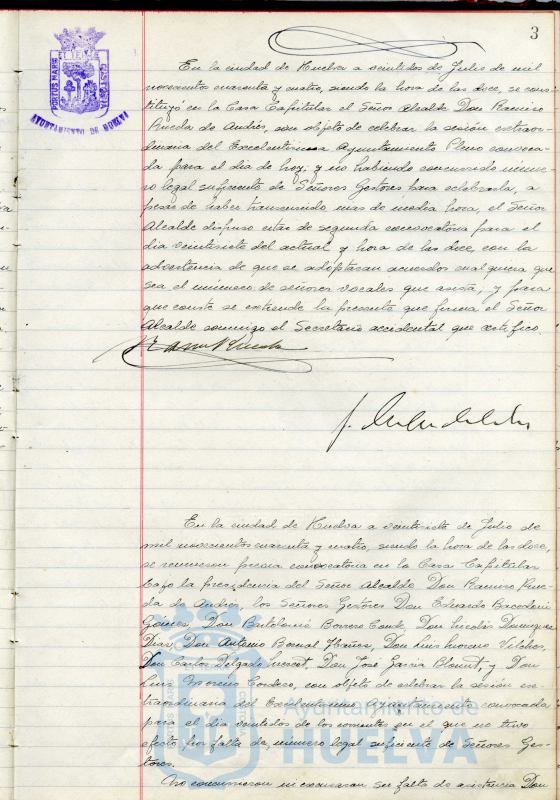 3
PORTUS MARIS ET TERRE CUSTODIA
AYUNTAMIENTO DE HUELVA
En la ciudad de Huelva a veintidos de Julio de mil
novecientos cuarenta y cuatro, siendo la hora de las doce, se cons-
tituyó en la Casa Capitular el Señor Alcalde Don Ramiro
Pineda de Andrés, con objeto de celebrar la sesión extraor-
dinaria del Excelentísimo Ayuntamiento Pleno convoca-
da para el dia de hoy, y no habiendo concurrido núme-
ro legal suficiente de Señores Gestores para celebrarla, a
pesar de haber transcurrido mas de media hora, el Señor
Alcalde dispuso citar de segunda convocatoria para el
dia veintisiete del actual y hora de las doce, con la
advertencia de que se adoptaran acuerdos cualquiera que
sea el número de señores vocales que asista; y para
que conste se extiende la presente que firma el Señor
Alcalde conmigo el Secretario accidental que certifico.
En la ciudad de Huelva a veintisiete de Julio de
mil novecientos cuarenta y cuatro, siendo la hora de las doce,
se reunieron previa convocatoria en la Casa Capitular
bajo la presidencia del Señor Alcalde Don Ramiro Pine-
da de Andrés los Señores Gestores Don Eduardo
Gomez, Don Bartolomé Borrero Conde, Don Nicolás Dominguez
Diaz, Don Antonio Bernal Ibañez, Don Luis Moreno Vilches,
Don Carlos Delgado Don José Garcia y Don
Luis Moreno Cordero, con objeto de celebrar la sesión ex-
traordinaria del Excelentisimo Ayuntamiento convocada
para el dia veintidos de los corrientes en el que no tuvo
efecto por falta de número legal suficiente de Señores Ges-
tores.
No concurrieron ni excusaron su falta de asistencia Don
Ayuntamiento de
HUELVA